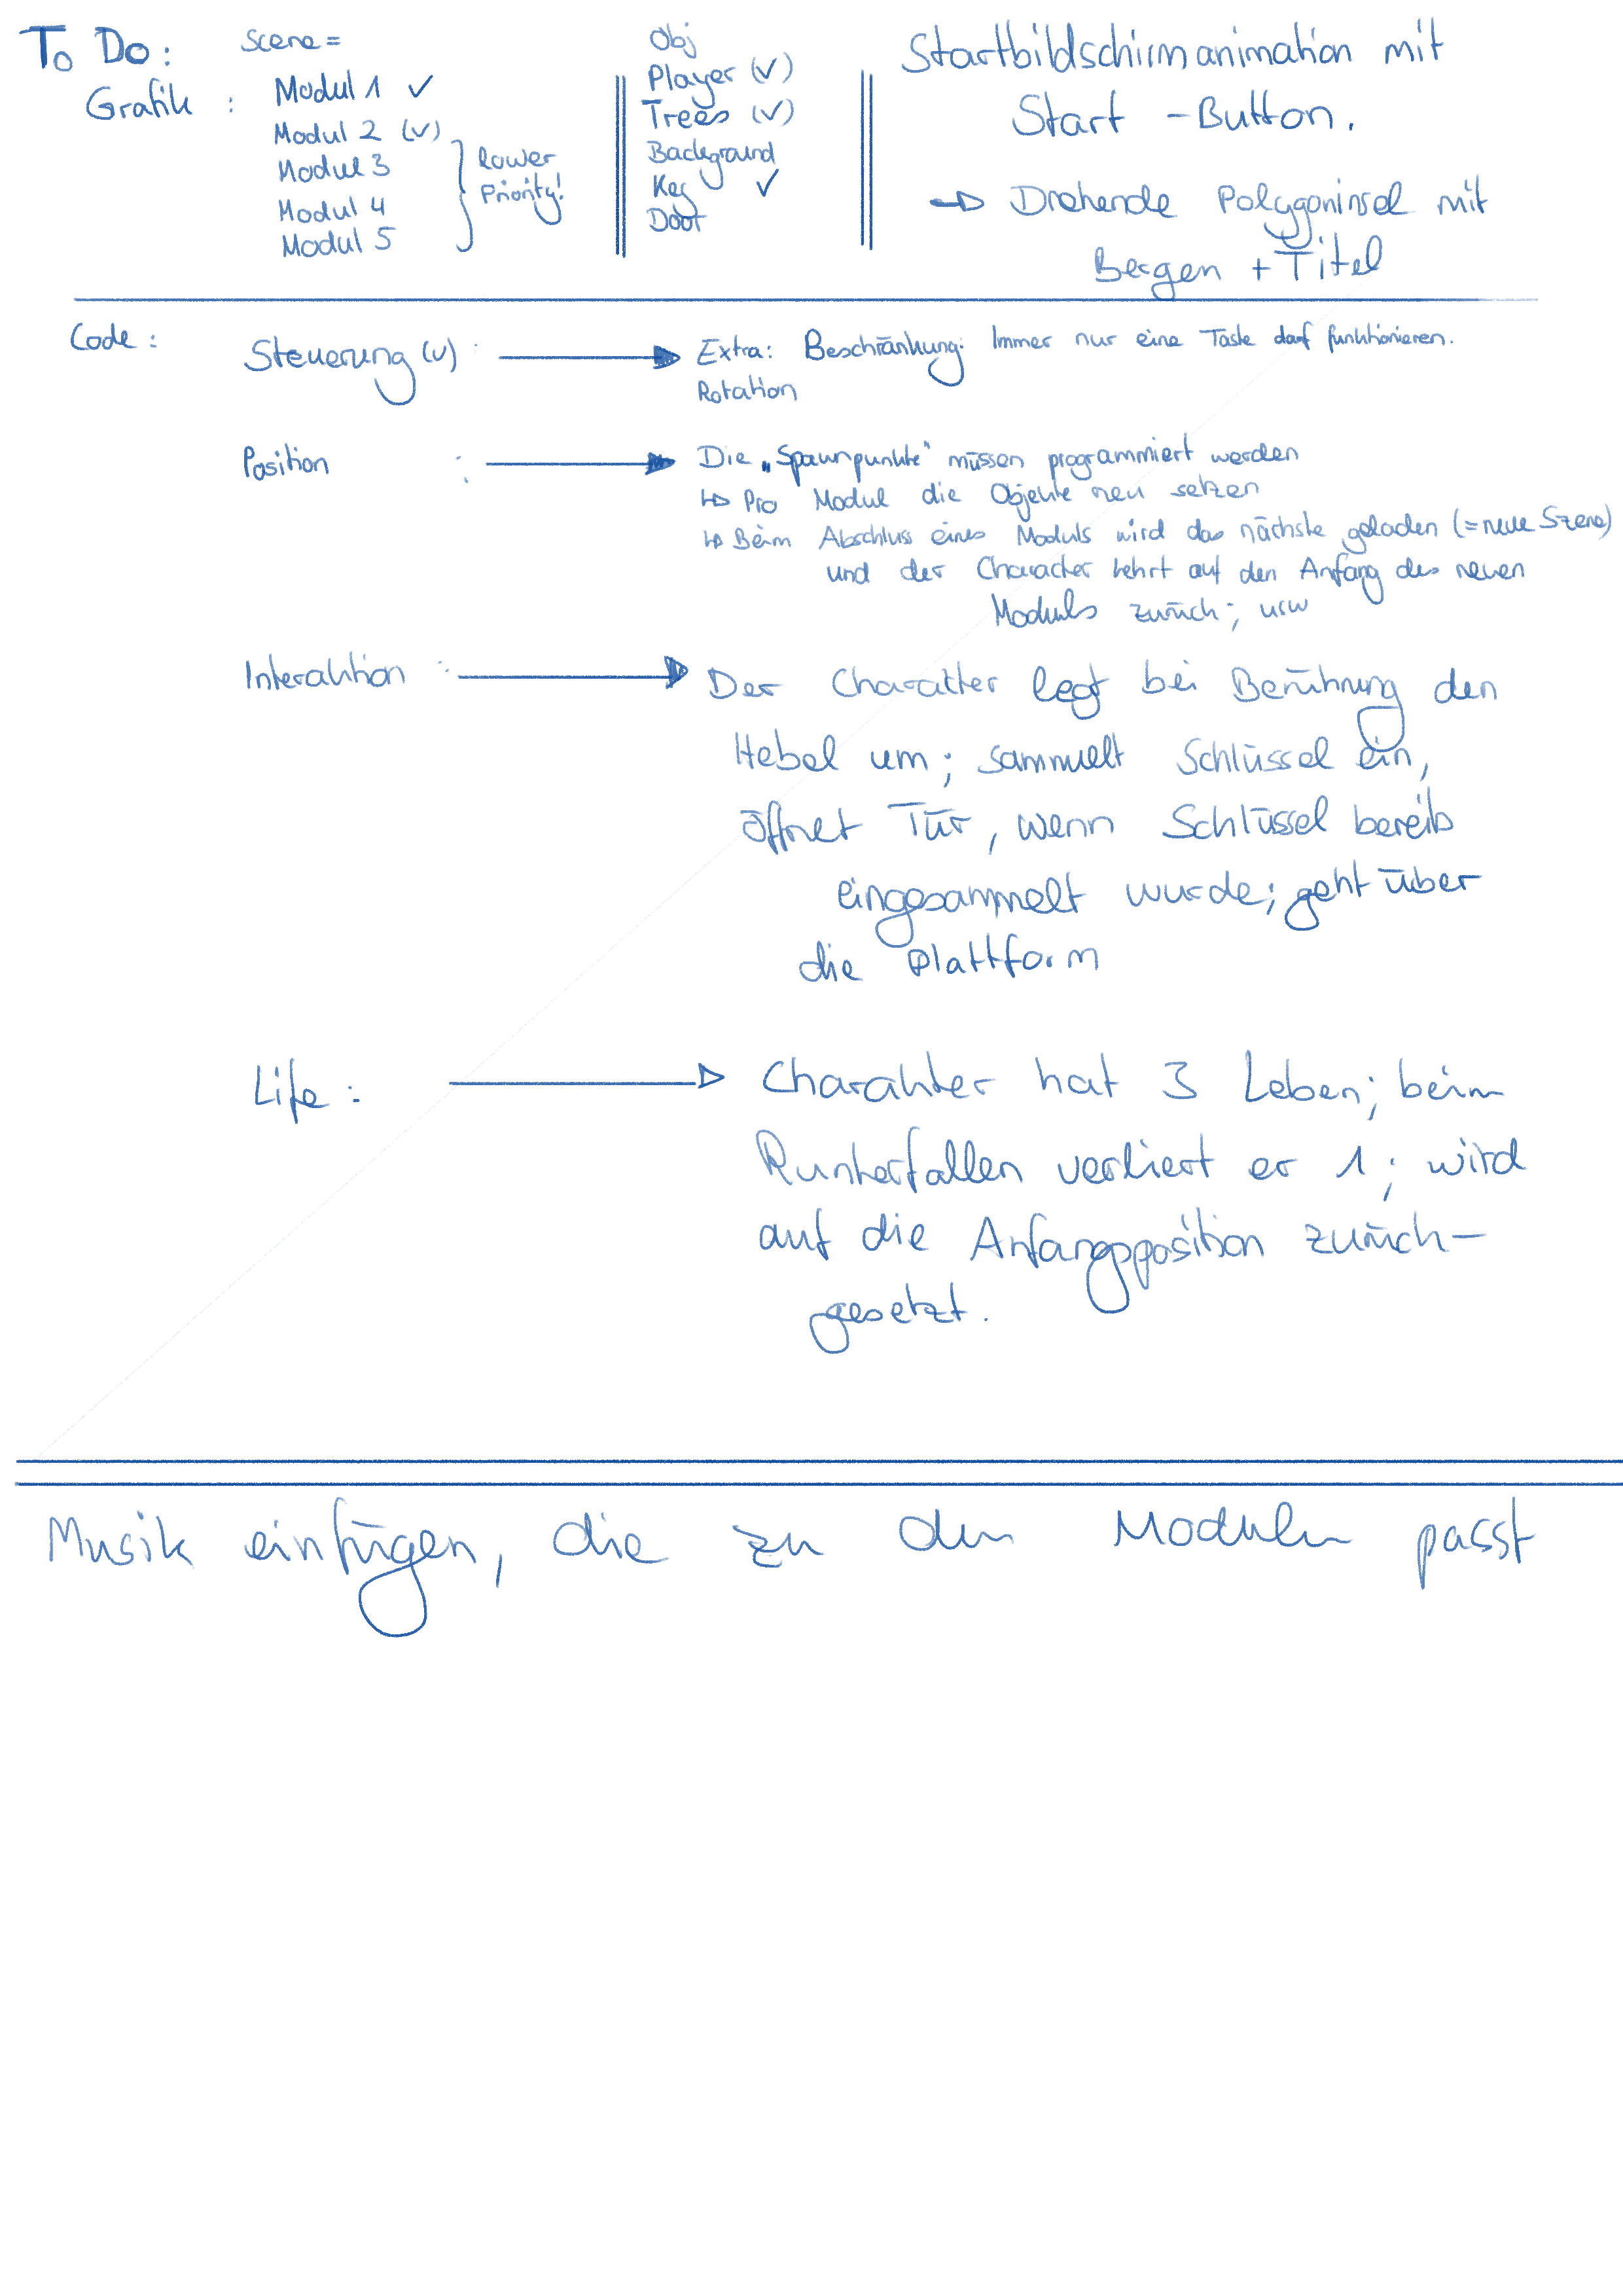 To Do:
Scene =
Grafik :
Modul 1 ✓
Modul 2 (✓)
Modul 3
Modul 4
Modul 5
lower
Priority!
Obj
Player (✓)
Trees (✓)
Background
Key ✓
Door
Startbildschirmanimation mit
Start - Button.
→ Drehende Polygoninsel mit
Bergen + Titel
Code :
Steuerung (✓) : → Extra: Beschränkung: Immer nur eine Taste darf funktionieren.
Rotation
Position : → Die „Spawnpunkte" müssen programmiert werden
↳ Pro Modul die Objekte neu setzen
↳ Beim Abschluss eines Moduls wird das nächste geladen (= neue Szene)
und der Character kehrt auf den Anfang des neuen
Moduls zurück; usw
Interaktion : → Der Charakter legt bei Berührung den
Hebel um; sammelt Schlüssel ein,
öffnet Tür, wenn Schlüssel bereits
eingesammelt wurde; geht über
die Plattform
Life : → Charakter hat 3 Leben; beim
Runterfallen verliert er 1; wird
auf die Anfangsposition zurück-
gesetzt.
Musik einfügen, die zu den Modulen passt